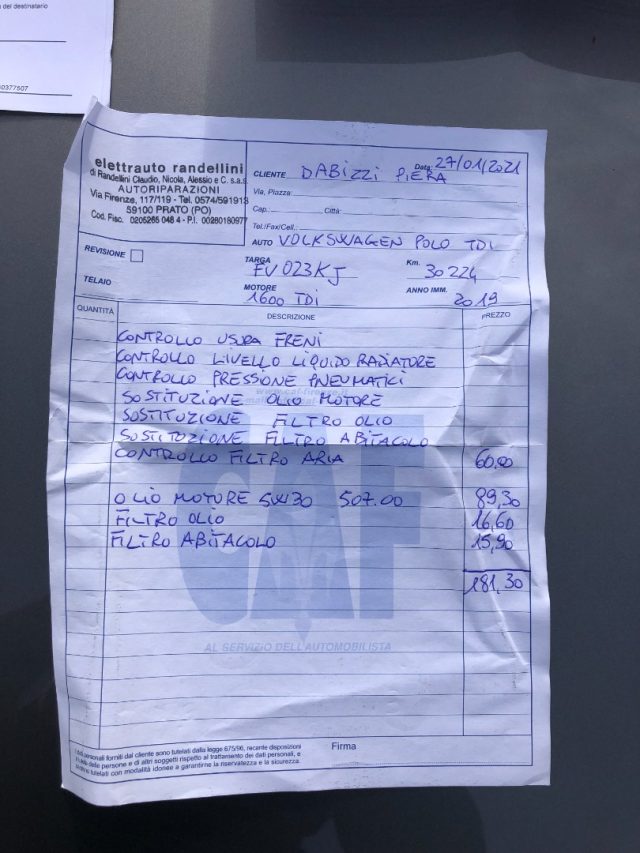 del destinatario
0377607
elettrauto randellini
di Randellini Claudio, Nicola, Alessio e C. s.a.s.
AUTORIPARAZIONI
Via Firenze, 117/119 - Tel. 0574/591913
59100 PRATO (PO)
Cod. Fisc. 0205265 048 4 - P.I. 00260180977
Data: 27/01/2021
CLIENTE DABIZZI PIERA
Via, Piazza:
Cap. Città:
Tel./Fax/Cell.:
AUTO VOLKSWAGEN POLO TDI
REVISIONE
TARGA FV023KJ Km. 30224
TELAIO MOTORE 1600 TDI ANNO IMM. 2019
QUANTITÀ DESCRIZIONE PREZZO
CONTROLLO USURA FRENI
CONTROLLO LIVELLO LIQUIDO RADIATORE
CONTROLLO PRESSIONE PNEUMATICI
SOSTITUZIONE OLIO MOTORE
SOSTITUZIONE FILTRO OLIO
SOSTITUZIONE FILTRO ABITACOLO
CONTROLLO FILTRO ARIA 60,00
OLIO MOTORE 5W30 507.00 89,30
FILTRO OLIO 16,60
FILTRO ABITACOLO 15,90
181,30
CAF
AL SERVIZIO DELL'AUTOMOBILISTA
I dati personali forniti dal cliente sono tutelati dalla legge 675/96, recante disposizioni
a tutela delle persone e di altri soggetti rispetto al trattamento dei dati personali, e
tutelati con modalità idonee a garantirne la riservatezza e la sicurezza.
Firma